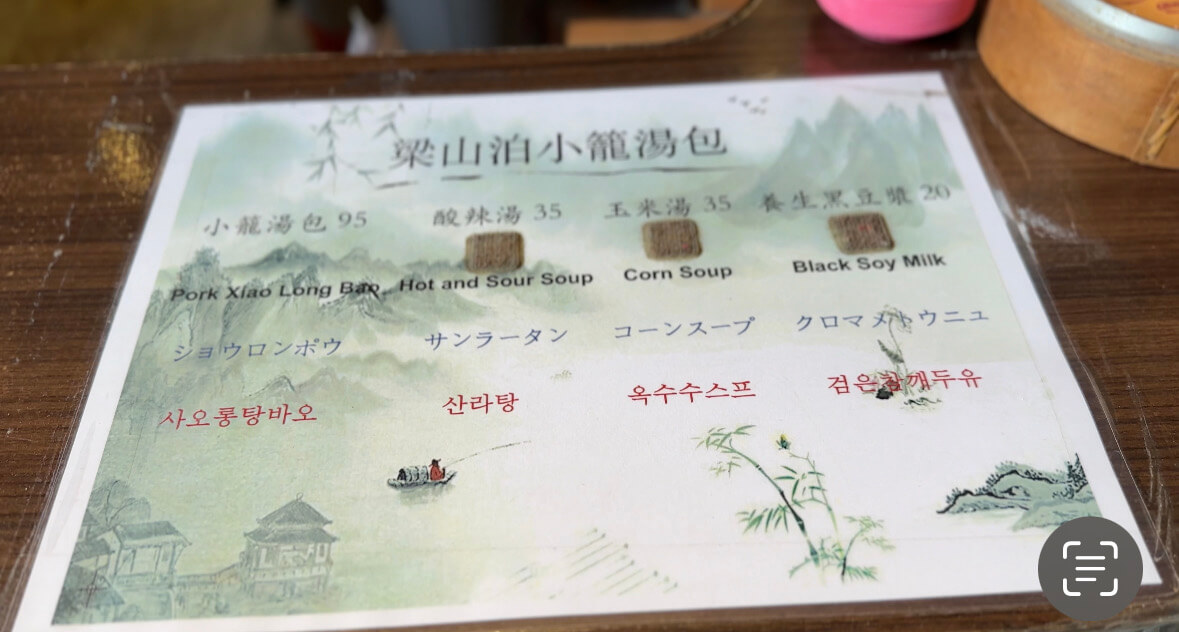 梁山泊小籠湯包
小籠湯包 95 酸辣湯 35 玉米湯 35 養生黑豆漿 20
Pork Xiao Long Bao Hot and Sour Soup Corn Soup Black Soy Milk
ショウロンポウ サンラータン コーンスープ クロマメトウニュ
사오롱탕바오 산라탕 옥수수스프 검은참깨두유